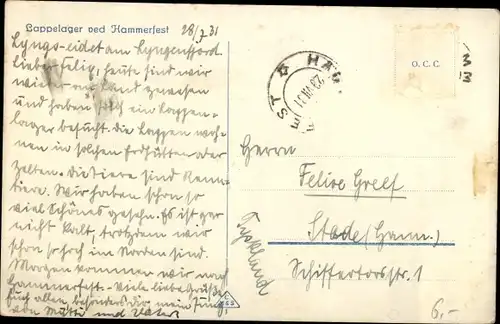 Lappelager ved Hammerfest
28/7 31
Lyngs-eidet am Lyngenfjord
lieber Felix, heute sind wir
wieder an Land gewesen
und haben solch ein Lappen-
lager besucht. Die Lappen woh-
nen in solchen Erdhütten oder
Zelten. Die Tiere sind Renn-
tiere. Wir haben schon so
viel Schönes gesehn. Es ist gar
nicht kalt, trotzdem wir
schon so hoch im Norden sind.
Morgen kommen wir nach
Hammerfest. Viele liebe Grüße
Euch allen, besonders dir mein Jung,
von Mutti und Vater
O.C.C.
Herrn
Felix Greef
Stade (Hann.)
Schiffertorsstr. 1
Tyskland
6,-